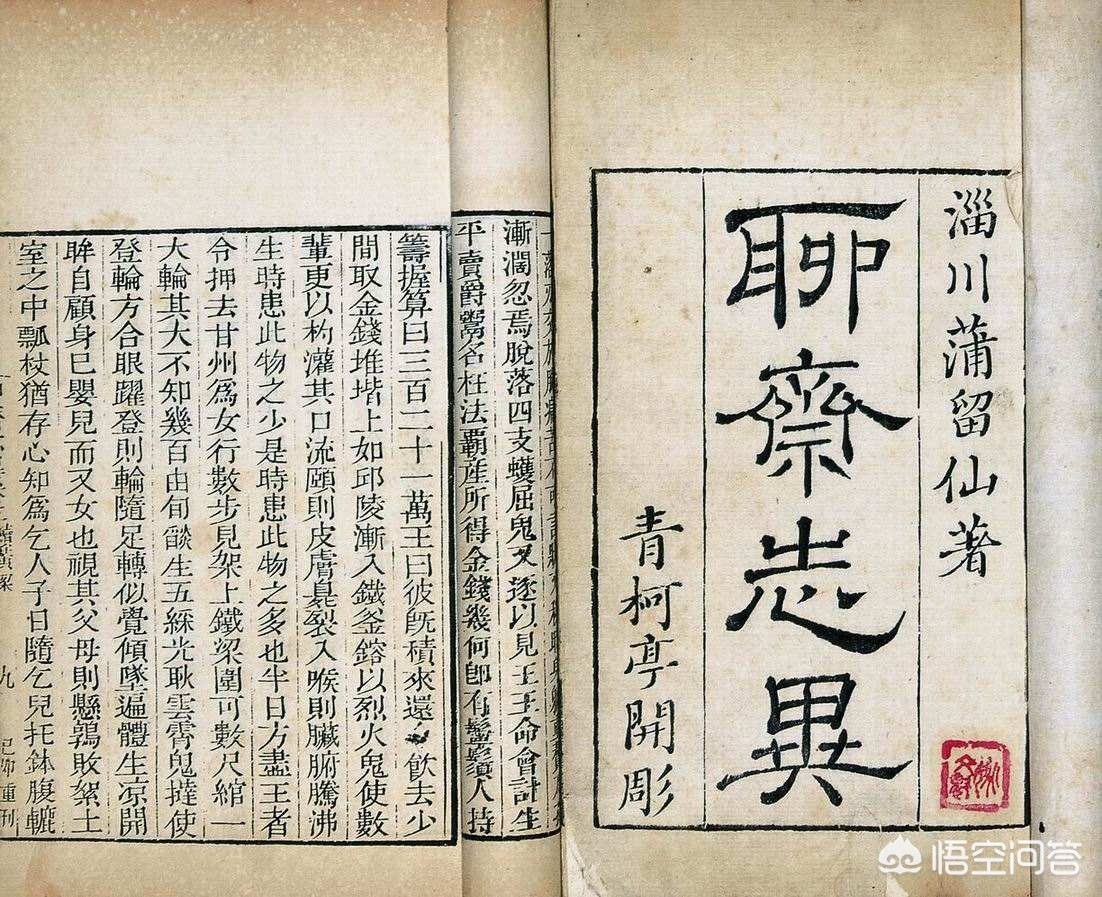 淄川蒲留仙著
聊齋志異
青柯亭開彫
漸潤忽焉脫落四支蠖屈鬼又逐以見王王命會計生
平賣爵鬻名枉法覇産所得金錢幾何卽有鬈鬚人持
籌握算曰三百二十一萬王曰彼旣積來還飮去少
間取金錢堆堦上如邱陵漸入鐵釜鎔以烈火鬼使數
輩更以杓灌其口流頤則皮膚臭裂入喉則臟腑騰沸
生時患此物之少是時患此物之多也半日方盡王者
令押去甘州爲女行數步見架上鐵梁圍可數尺綰一
大輪其大不知幾百由旬燄生五綵光耿雲霄鬼撻使
登輪方合眼躍登則輪隨足轉似覺傾墜遍體生凉開
眸自顧身已嬰兒而又女也視其父母則懸鶉敗絮土
室之中瓢杖猶存心知爲乞人子日隨乞兒托鉢腹轆
九
重刊
悟空问答